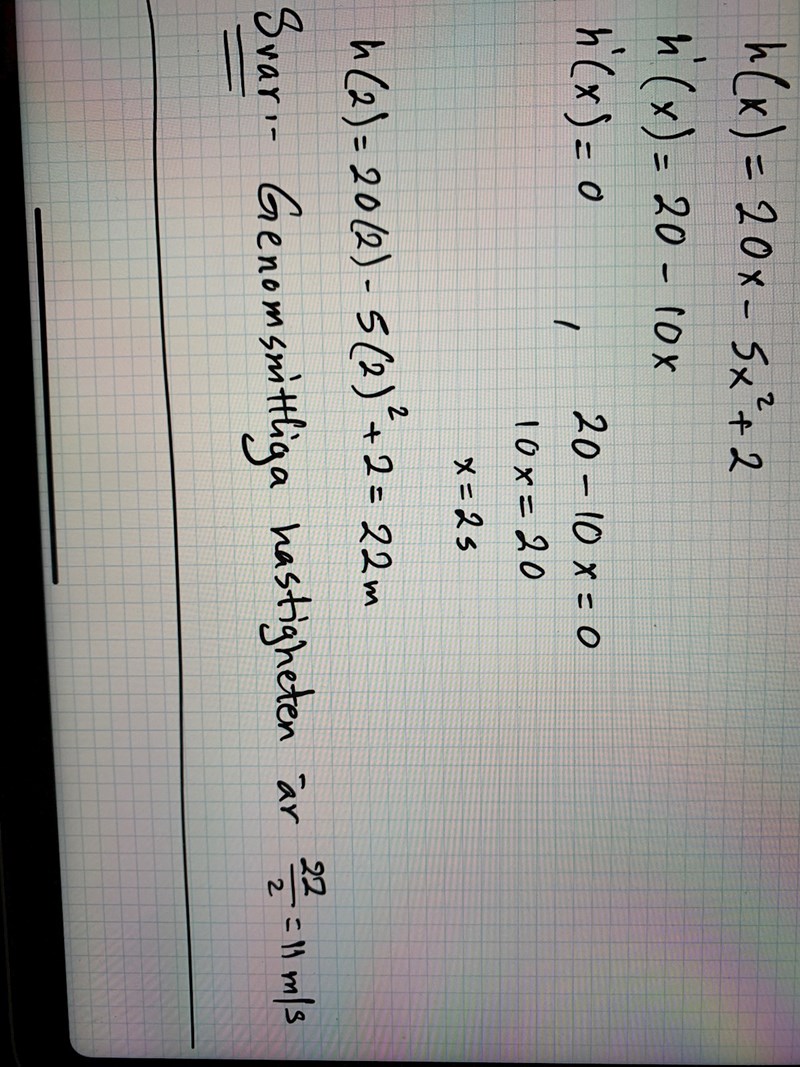 h(x) = 20x - 5x² + 2
h'(x) = 20 - 10x
h'(x) = 0 , 20 - 10x = 0
10x = 20
x = 2s
h(2) = 20(2) - 5(2)² + 2 = 22m
Svar:- Genomsnittliga hastigheten är 22/2 = 11 m/s